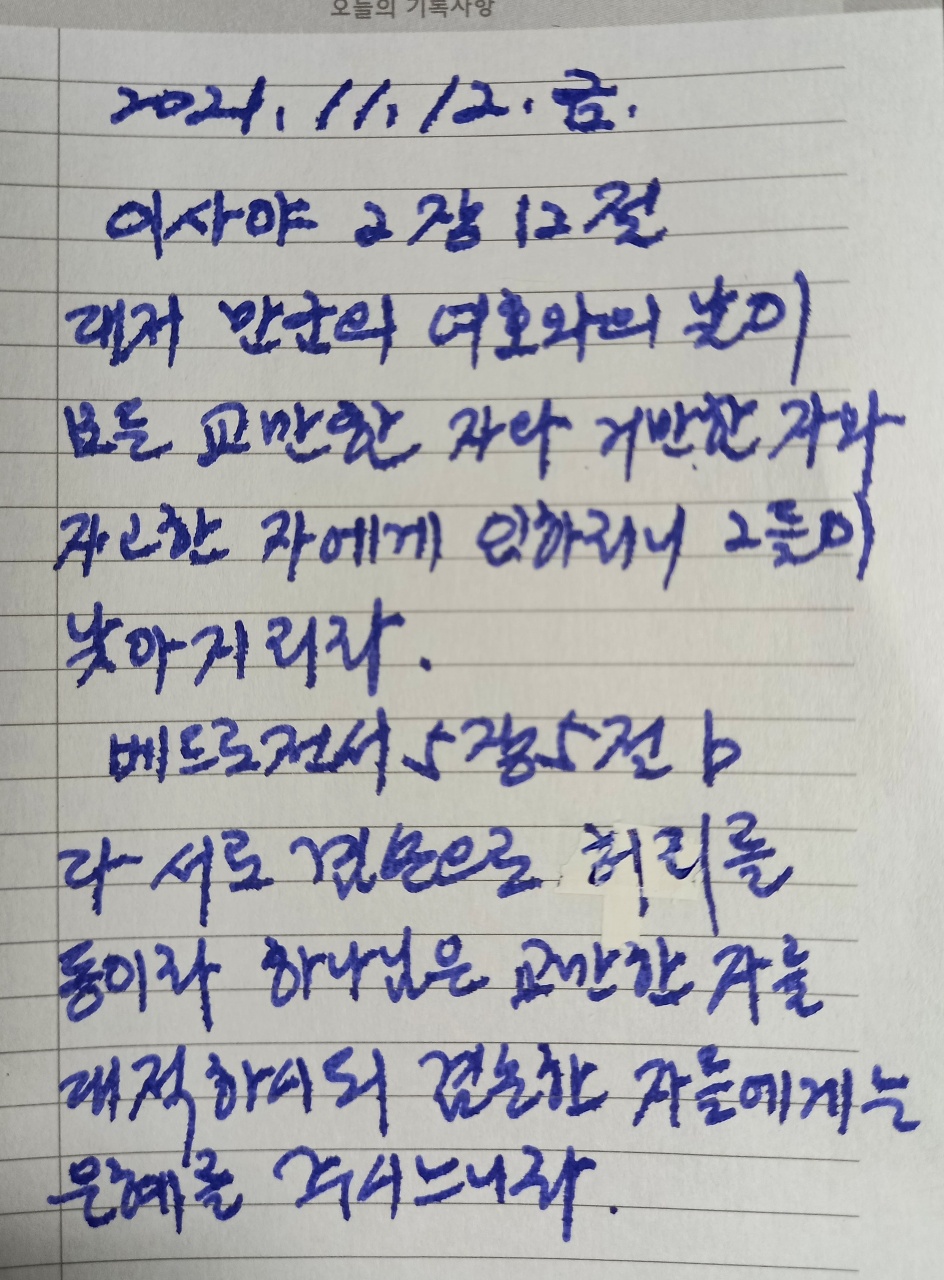 오늘의 기록사항
2021. 11. 12. 금.
이사야 2장 12절
대저 만군의 여호와의 날이
모든 교만한 자와 거만한 자와
자고한 자에게 임하리니 그들이
낮아지리라.
베드로전서 5장 5절 b
다 서로 겸손으로 허리를
동이라 하나님은 교만한 자를
대적하시되 겸손한 자들에게는
은혜를 주시느니라.